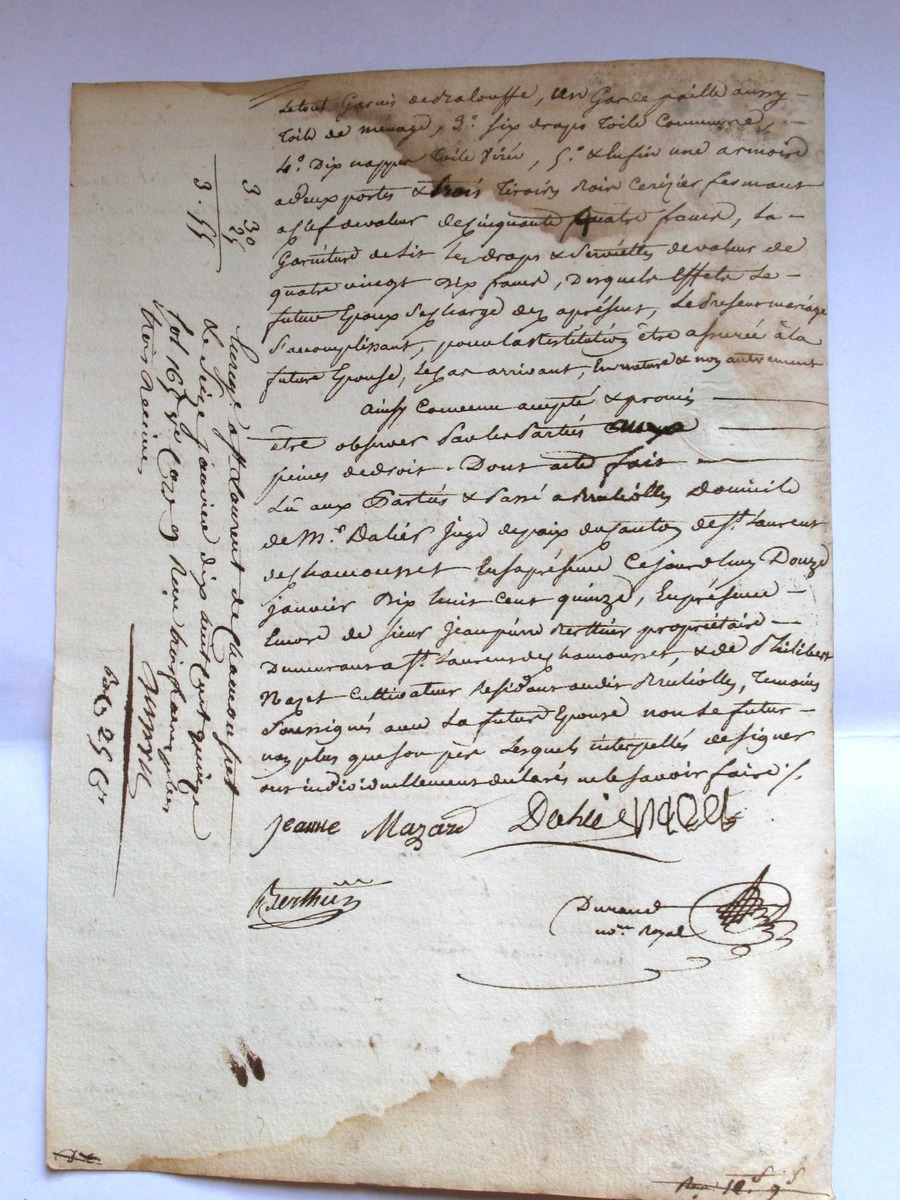 Letout Garnis de Balouffe, un Garde paille aussy
toile de menage, 3.° six draps toile Commune,
4.° Dix nappes toile 5.° & Enfin une armoire
adeux portes & trois tiroirs Bois Cerizier fermant
aclef de valeur de Cinquante quatre francs, La
Garniture de Lit Les draps & Serviettes de valeur de
quatre vingt Dix francs, Desquels Effets Le
futur Epoux Se charge des apresent, Le Present mariage
S'acomplissant, pour la Restitution être assurée à la
future Epouse, le cas arrivant, En nature & non autrement
Ainsy Convenu accepté & promis
être observer Par les Parties
peines de droit. Dont acte fait
Lû aux Parties & Passé a Bruliolles Domicile
de M.e Dalier Juge de paix du Canton de S.t Laurent
de Chamousset En sa présence Cejourdhuy Douze
janvier Dix huit Cent quinze, En présence
Encore de Sieur Jean pierre Berthier propriétaire
Demeurant a S.t Laurent de Chamousset, & de Philibert
Nazet Cultivateur Résidant audit Bruliolles, Temoins
Soussignés avec La future Epouse non Le futur
non plus que son père Lesquels interpellés de signer
ont individuellement déclarés ne le savoir faire ./.
Jeanne Mazard Dalier Nazet
Berthier
Durand
no.re Royal
3 30
25
3 . 55
Enreg.é à S.t Laurent de Chamousset
Le Seize janvier dix huit Cent quinze
fol 165 v.e Case 9 Reçu trois francs plus
25 C.s